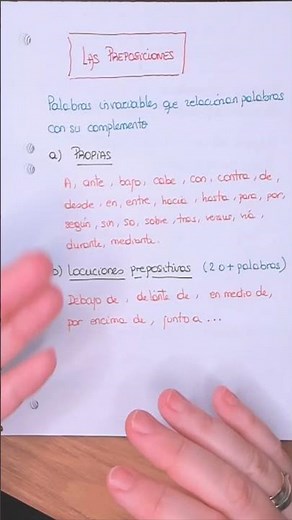 LAS PREPOSICIONES
Palabras invariables que relacionan palabras
con su complemento
a) PROPIAS
A, ante, bajo, cabe, con, contra, de,
desde, en, entre, hacia, hasta, para, por,
según, sin, so, sobre, tras, versus, vía,
durante, mediante.
b) Locuciones prepositivas (2 o + palabras)
Debajo de, delante de, en medio de,
por encima de, junto a ...